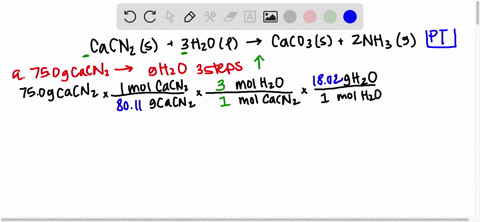 CaCN₂(s) + 3H₂O(l) → CaCO₃(s) + 2NH₃(g) PT
a. 75.0g CaCN₂ → gH₂O 3steps ↑
75.0g CaCN₂ × 1 mol CaCN₂ / 80.11 g CaCN₂ × 3 mol H₂O / 1 mol CaCN₂ × 18.02 gH₂O / 1 mol H₂O